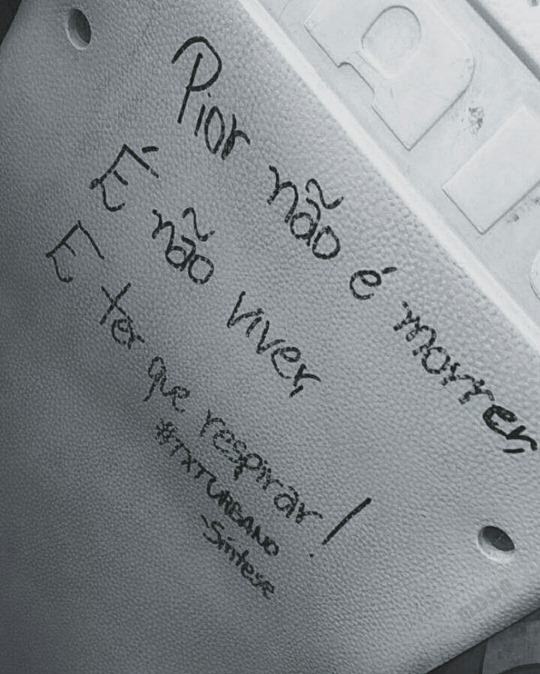 Pior não é morrer,
É não viver,
E ter que respirar!
#TXTURBANO
-Síntese